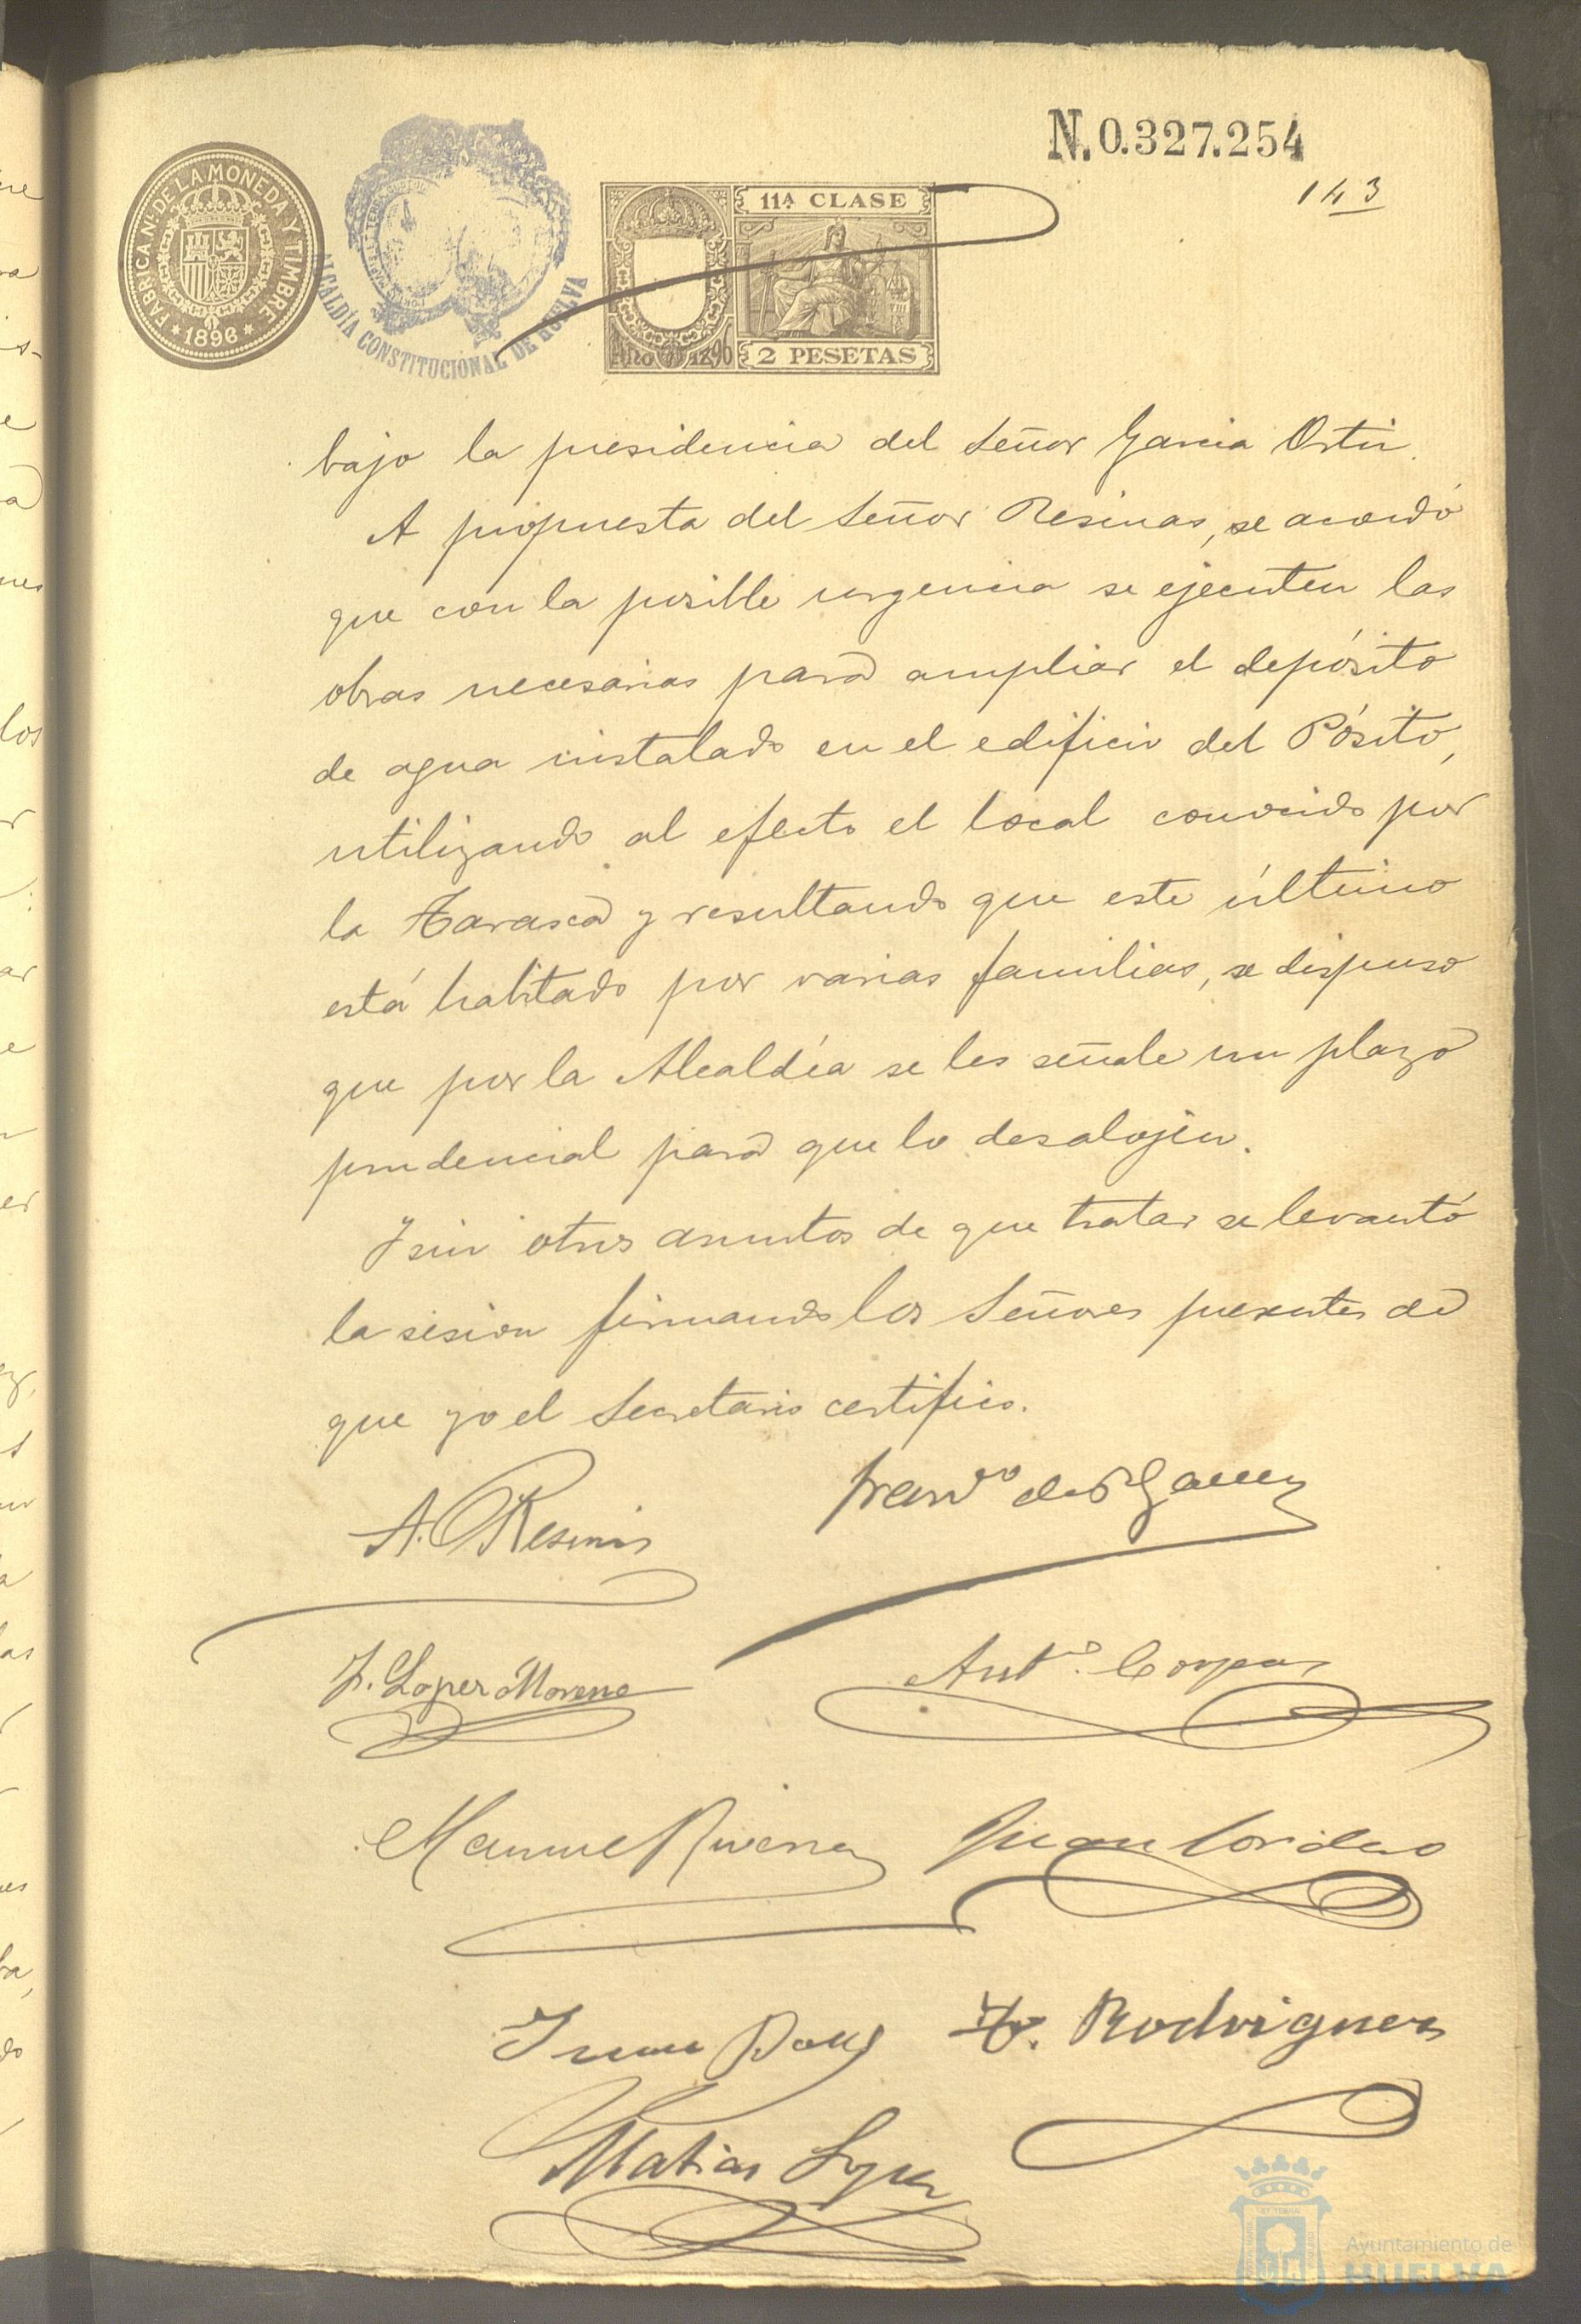 N. 0.327.254
143
FÁBRICA N. DE LA MONEDA Y TIMBRE
* 1896 *
ALCALDÍA CONSTITUCIONAL DE HUELVA
11ª CLASE
Año 1896
2 PESETAS
bajo la presidencia del Señor Garcia Ortiz.
A propuesta del Señor Resinas, se acordó
que con la posible urgencia se ejecuten las
obras necesarias para ampliar el depósito
de agua instalado en el edificio del Pósito,
utilizando al efecto el local conocido por
la Tarasca y resultando que este último
está habitado por varias familias, se dispuso
que por la Alcaldía se les señale un plazo
prudencial para que lo desalojen.
Y sin otros asuntos de que tratar se levantó
la sesion firmando los Señores presentes de
que yo el Secretario certifico.
A. Resinas
Franco de P.
J. Lopez Moreno
Antº. Corpas
Manuel Rivera
Juan Cordero
Juan
F. Rodriguez
Matias Lopez
Ayuntamiento de
HUELVA